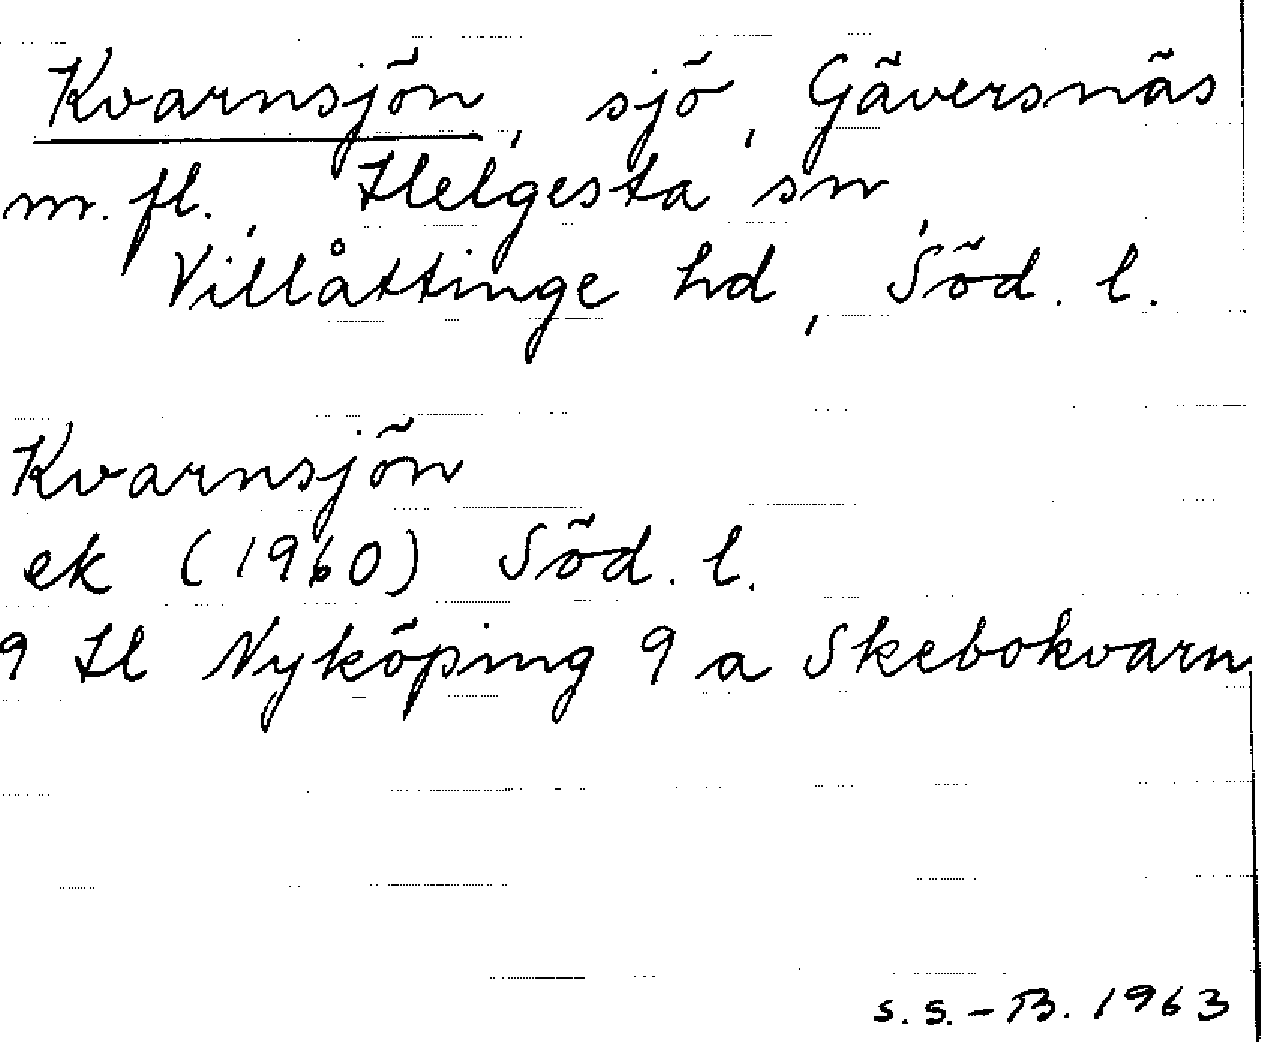 Kvarnsjön, sjö, Gäversnäs
m. fl., Helgesta sn,
Villåttinge hd, Söd. l.
Kvarnsjön
ek (1960) Söd. l.
9 H Nyköping 9 a Skebokvarn
S. S. - B. 1963